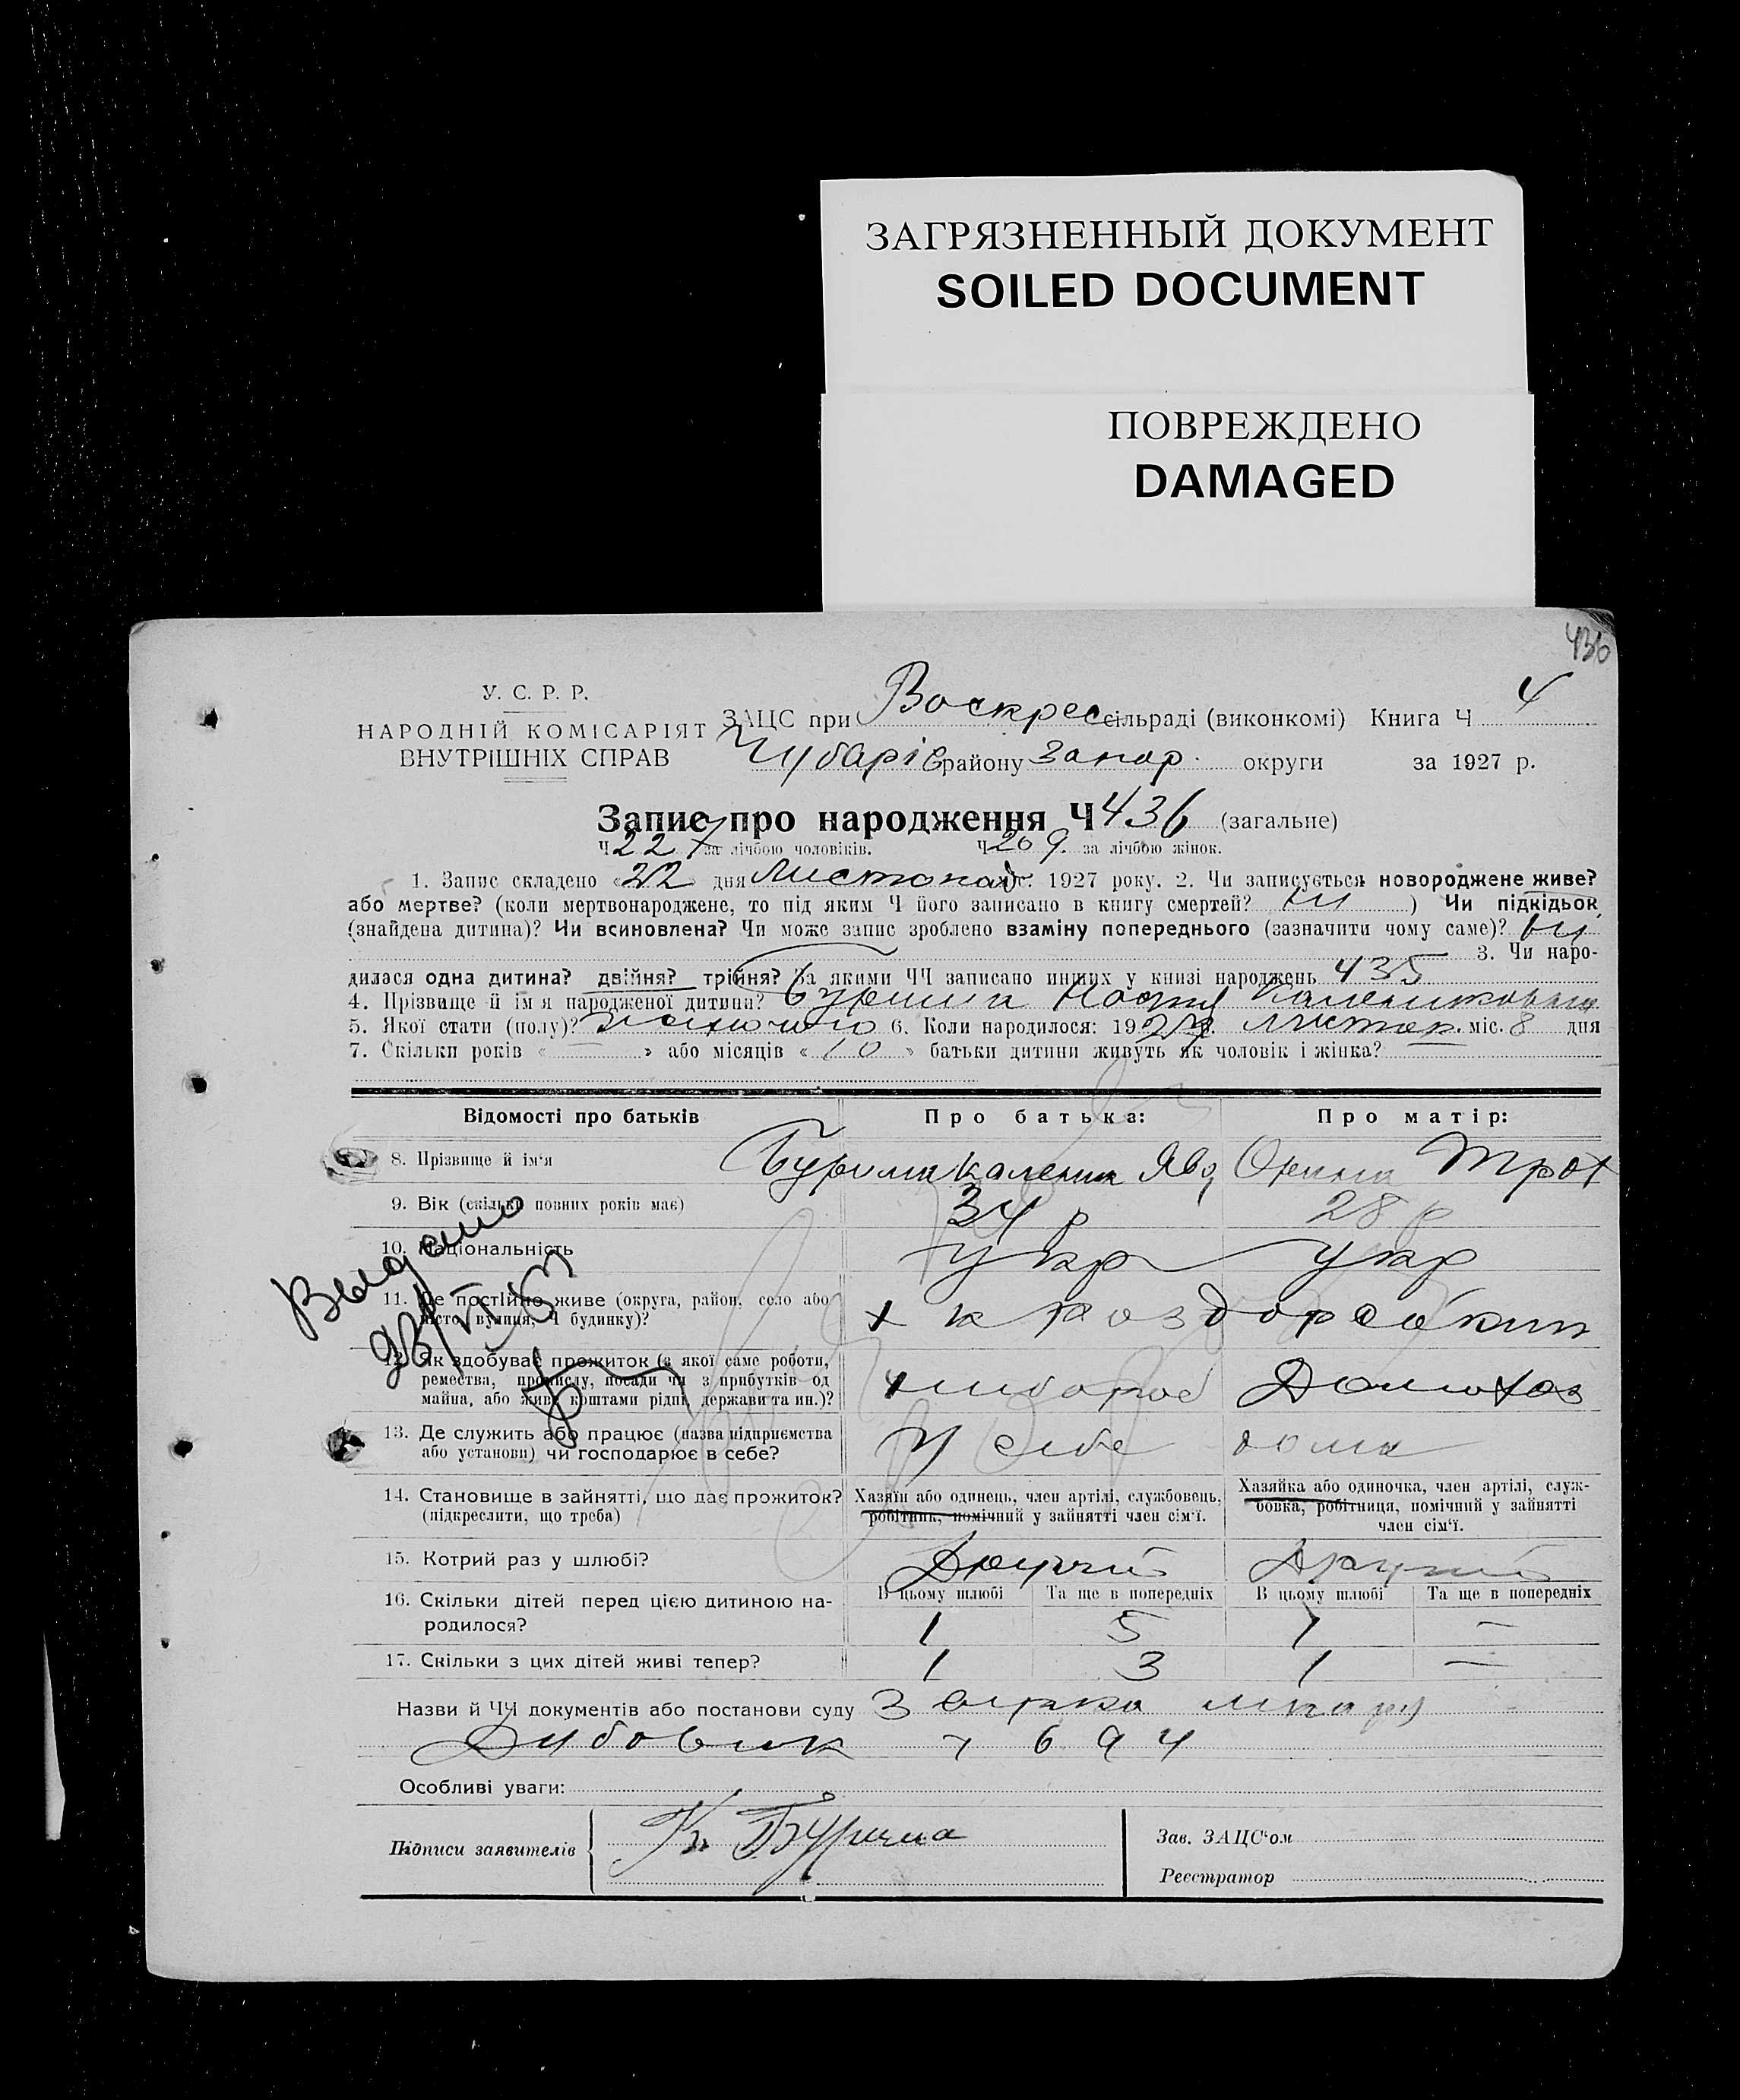 ЗАГРЯЗНЕННЫЙ ДОКУМЕНТ
SOILED DOCUMENT
ПОВРЕЖДЕНО
DAMAGED
436
У. С. Р. Р.
НАРОДНІЙ КОМІСАРІЯТ
ВНУТРІШНІХ СПРАВ
ЗАЦС при Воскрес сільраді (виконкомі) Книга Ч 4
Чубарів району Запор. округи за 1927 р.
Запис про народження Ч 436 (загальне)
Ч 227 за лічбою чоловіків. Ч 209 за лічбою жінок.
1. Запис складено «22» дня Листопад 1927 року. 2. Чи записується новороджене живе?
або мертве? (коли мертвонароджене, то під яким Ч його записано в книгу смертей? ни ) Чи підкідьок
(знайдена дитина)? Чи всиновлена? Чи може запис зроблено взаміну попереднього (зазначити чому саме)? ни
3. Чи наро-
дилася одна дитина? двійня? трійня? За якими ЧЧ записано инших у книзі народжень 435
4. Прізвище й ім'я народженої дитини? Бурима
5. Якої стати (полу)? 6. Коли народилося: 1927 листоп. міс. 8 дня
7. Скільки років « — » або місяців « 10 » батьки дитини живуть як чоловік і жінка?
Відомості про батьків Про батька: Про матір:
8. Прізвище й ім'я Бурима Каленик Явд Орина Трох
9. Вік (скільки повних років має) 34 р 28 р
10. Національність укр укр
11. Де постійно живе (округа, район, село або
місто, вулиця, Ч будинку)?
12. Як здобуває прожиток (з якої саме роботи,
ремества, промислу, посади чи з прибутків од
майна, або живе коштами рідні, держави та ин.)? хлибороб Домохаз
13. Де служить або працює (назва підприємства
або установи) чи господарює в себе? У себе дома
14. Становище в зайнятті, що дає прожиток?
(підкреслити, що треба)
Хазяїн або одинець, член артілі, службовець,
робітник, помічний у зайнятті член сім'ї.
Хазяйка або одиночка, член артілі, служ-
бовка, робітниця, помічний у зайнятті
член сім'ї.
15. Котрий раз у шлюбі? Другий Другий
В цьому шлюбі Та ще в попередніх В цьому шлюбі Та ще в попередніх
16. Скільки дітей перед цією дитиною на-
родилося? 1 5 1 —
17. Скільки з цих дітей живі тепер? 1 3 1 —
Видано
Назви й ЧЧ документів або постанови суду
694
Особливі уваги:
Підписи заявителів К. Бурима
Зав. ЗАЦС'ом
Реєстратор